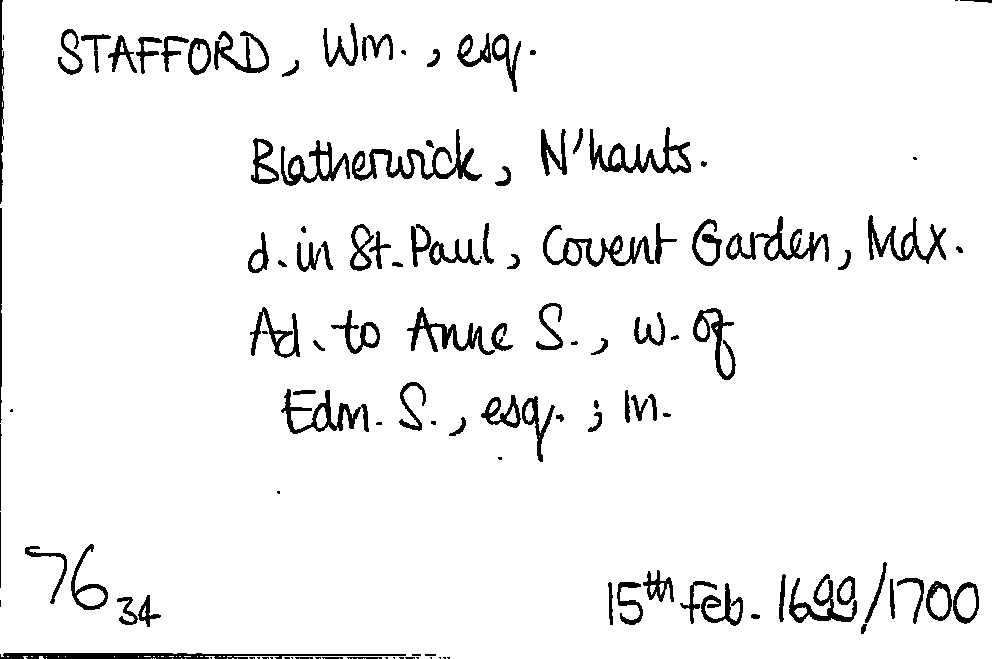 STAFFORD, Wm., esq.
Blatherwick, N'hants.
d. in St. Paul, Covent Garden, Mdx.
Ad. to Anne S., w. of
Edm. S., esq.; m.
76 34
15th Feb. 1699/1700